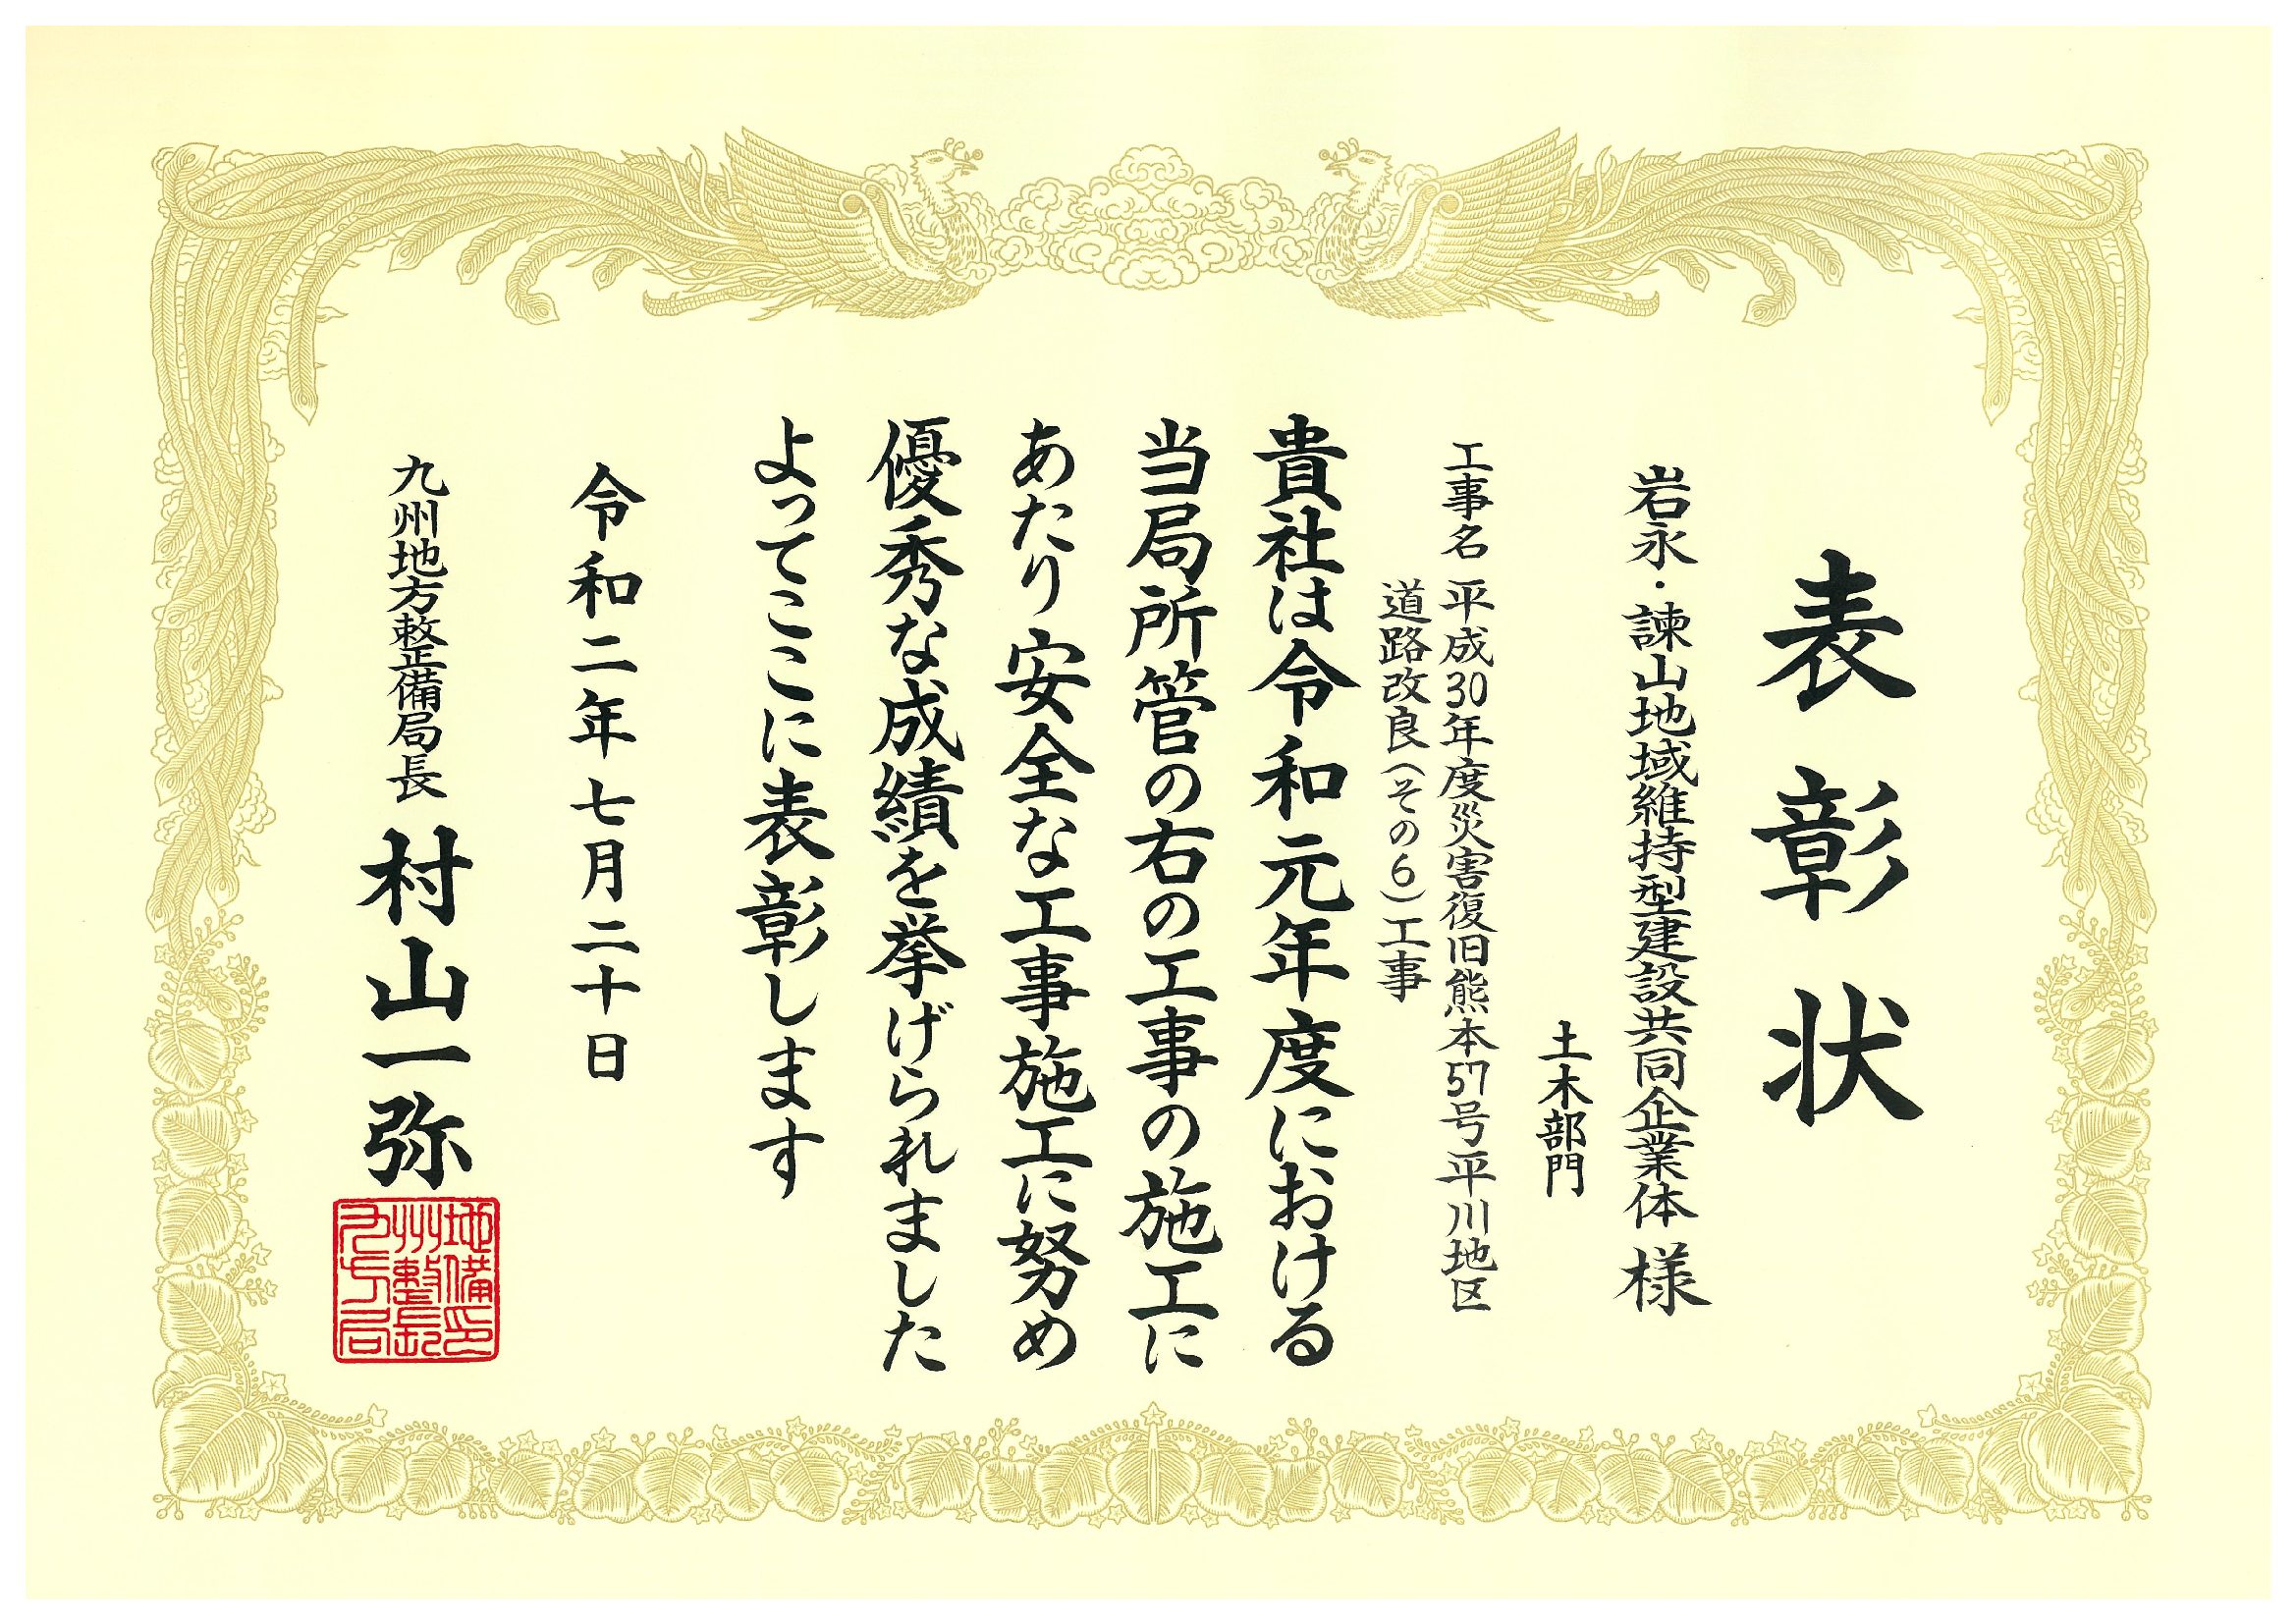 表彰状
岩永・諫山地域維持型建設共同企業体 様
土木部門
工事名 平成30年度災害復旧熊本57号平川地区
道路改良(その6)工事
貴社は令和元年度における
当局所管の右の工事の施工に
あたり安全な工事施工に努め
優秀な成績を挙げられました
よってここに表彰します
令和二年七月二十日
九州地方整備局長 村山一弥